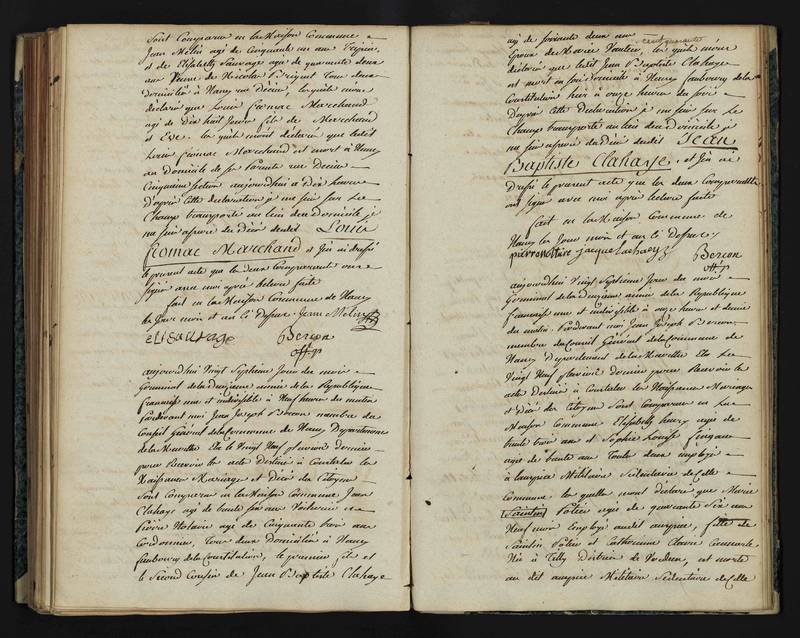 Sont Comparu en la Maison Commune
Jean Melin agé de Cinquante un ans
et de Elisabeth Sauvage agée de quarante deux
ans Veuve de Nicolas Brigent tous deux
Domiciliés à Nancy rue lesquels m'ont
déclaré que Louis Marchand
agé de Dix huit Jours fils de Marchand
et Eve lesquels m'ont déclaré que ledit
Louis Marchand est mort à Nancy
au Domicile de ses Parents rue
Cinquieme Section aujourd'hui à Dix heures
D'après cette déclaration je me suis sur le
Champ transporté au lieu du Domicile je
me suis assuré du décès dudit Louis
Marchand et j'en ai dressé
le présent acte que les deux Comparants ont
signé avec moi après lecture faite
fait en la Maison Commune de Nancy
les Jour mois et an ci Dessus Jean Melin
Sauvage Berson
off. p.
aujourd'hui Vingt Septieme Jour du mois
Germinal de la Deuxieme année de la République
française une et indivisible à Neuf heures du matin
Pardevant moi Jean Joseph Berson membre du
Conseil Général de la Commune de Nancy Departement
de la Meurthe Elu le Vingt Neuf pluviose dernier
pour Recevoir les actes Destinés à Constater les
Naissances Mariages et Décès des Citoyens
Sont Comparu en la Maison Commune Jean
Clahaye agé de trente ans Voiturier et
Pierre Notaire agé de Cinquante trois ans
Cordonnier, tous deux Domiciliés à Nancy
faubourg de la Constitution, le premier fils et
le Second Cousin de Jean Baptiste Clahaye
agé de soixante deux ans
Epoux de Marie lesquels m'ont
déclaré que ledit Jean Baptiste Clahaye
est mort en son Domicile à Nancy faubourg de la
Constitution hier à onze heures du soir
D'après cette Declaration je me suis sur le
Champ transporté au lieu du Domicile je
me suis assuré du décès dudit Jean
Baptiste Clahaye, et j'en ai
Dressé le présent acte que les deux Comparants
ont signé avec moi après lecture faite
fait en la Maison Commune de
Nancy les Jour mois et an ci Dessus
pierre Nottaire jacque Lahaey Berson
off. p.
aujourd'hui Vingt Septieme Jour du mois
Germinal de la Deuxieme année de la République
française une et indivisible à onze heures et demie
du matin Pardevant moi Jean Joseph Berson
membre du Conseil Général de la Commune de
Nancy Departement de la Meurthe Elu Le
Vingt Neuf pluviose dernier pour Recevoir les
actes Destinés à Constater les Naissances Mariages
et Décès des Citoyens Sont Comparu en la
Maison Commune Elisabeth henry agée de
trente trois ans et Sophie Louise
agée de trente ans Toutes deux employées
à l'hospice Militaire Sédentaire de cette
Commune lesquelles m'ont déclaré que Marie
Saintin Potier agée de quarante Six ans
Neuf mois Employée audit hospice, fille de
Saintin Potier et Catherinne
Née à Tilly District de Verdun, est morte
au dit hospice Militaire Sédentaire de cette